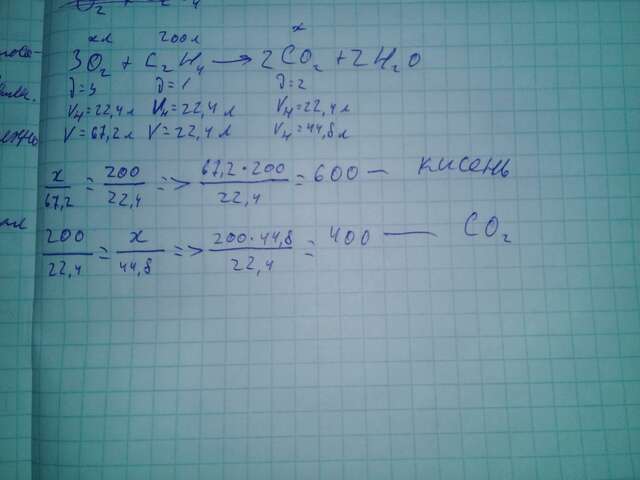 x л 200 л x
3O₂ + C₂H₄ → 2CO₂ + 2H₂O
V=1 V=2
Vн=22,4 л Vн=22,4 л Vн=22,4 л
V=67,2 л V=22,4 л Vн=44,8 л
x/67,2 = 200/22,4 => 67,2·200/22,4 = 600 — кисень
200/22,4 = x/44,8 => 200·44,8/22,4 = 400 — CO₂